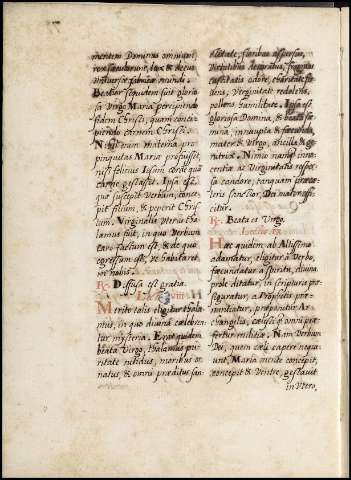 mentem Dominus omnium
rex
universæ fabricæ mundi.
Beatior siquidem fuit glorio
sa Virgo Maria percipiendo
fidem Christi, quam concip
piendo carnem Christi.
Nihil eum materna pro
pinquitas Mariæ profuisset,
nisi felicius Iesum corde quã
carne gestasset. Ipsa est,
quæ suscepit Verbum, conce
pit filium, & peperit Chris
tum. Virginalis uterus tha
lamus fuit, in quo Verbum
caro factum est, & de quo
egressum est, ut habitaret
in nobis.
R. Diffusa est gratia.
Merito talis eligitur thala
mus, in quo divina celebren
tur mysteria. Erat quidem
beata Virgo, thalamus pu
ritate nitidus, moribus or
natus, & omni præditus san
ctitate, floribus aspersus,
virtutibus decoratus, fragrans
castitatis odore, charitate
Virginitate redolens,
pollens humilitate. Ipsa est
gloriosa Domina, & beata fœ
mina, innupta & fœcunda,
mater & Virgo, ancilla & ge
nitrix. Nimio namq; inno
centiæ ac Virginitatis respe
rsa candore, tanquam
sanctior, Dei mater
citur.
R. Beata es Virgo.
Hæc quidem ab Altissimo
adamatur, eligitur à Verbo,
fæcundatur à spiritu, divina
prole ditatur, in scripturis pre
figuratur, a Prophetis pro
nuntiatur, proponitur Ar
changelis, cælisq; omni pre
fertur militiæ. Nam Verbum
Dei, quem cæli capere nequa
unt, Maria mente concepit,
concepit & Ventre, gestavit
in Utero,